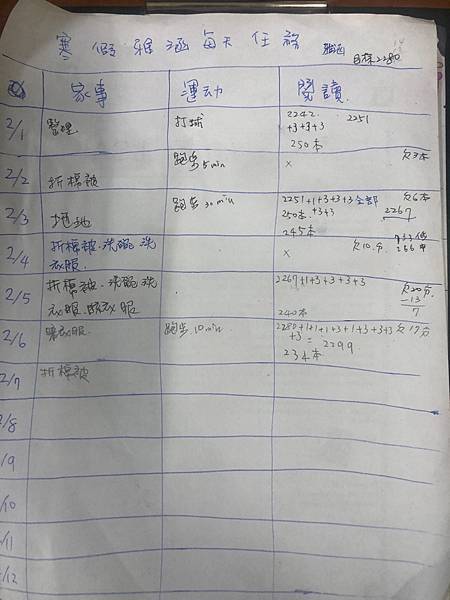 寒假雅涵每天任務
雅涵
目標2280
家事 運动 閱讀
2/1 整理 打球 2242 2251
+3+3+3
250本
2/2 折棉被 跑步5min × 欠3本
2/3 地 跑步30min 2251+1+3+3+3全部 欠6本
250本 +3+3 2267
245本
2/4 折棉被.洗碗.洗 × 欠10分
衣服.
2/5 折棉被.洗碗.洗 2267+1+3+3+3+3 欠20分
衣服. 衣服 -13
240本 7
2/6 衣服. 跑步10min 2280+1+1+3+1+3+3+3 欠17分
+3= 2299
234本
2/7 折棉被
2/8
2/9
2/10
2/11
2/12